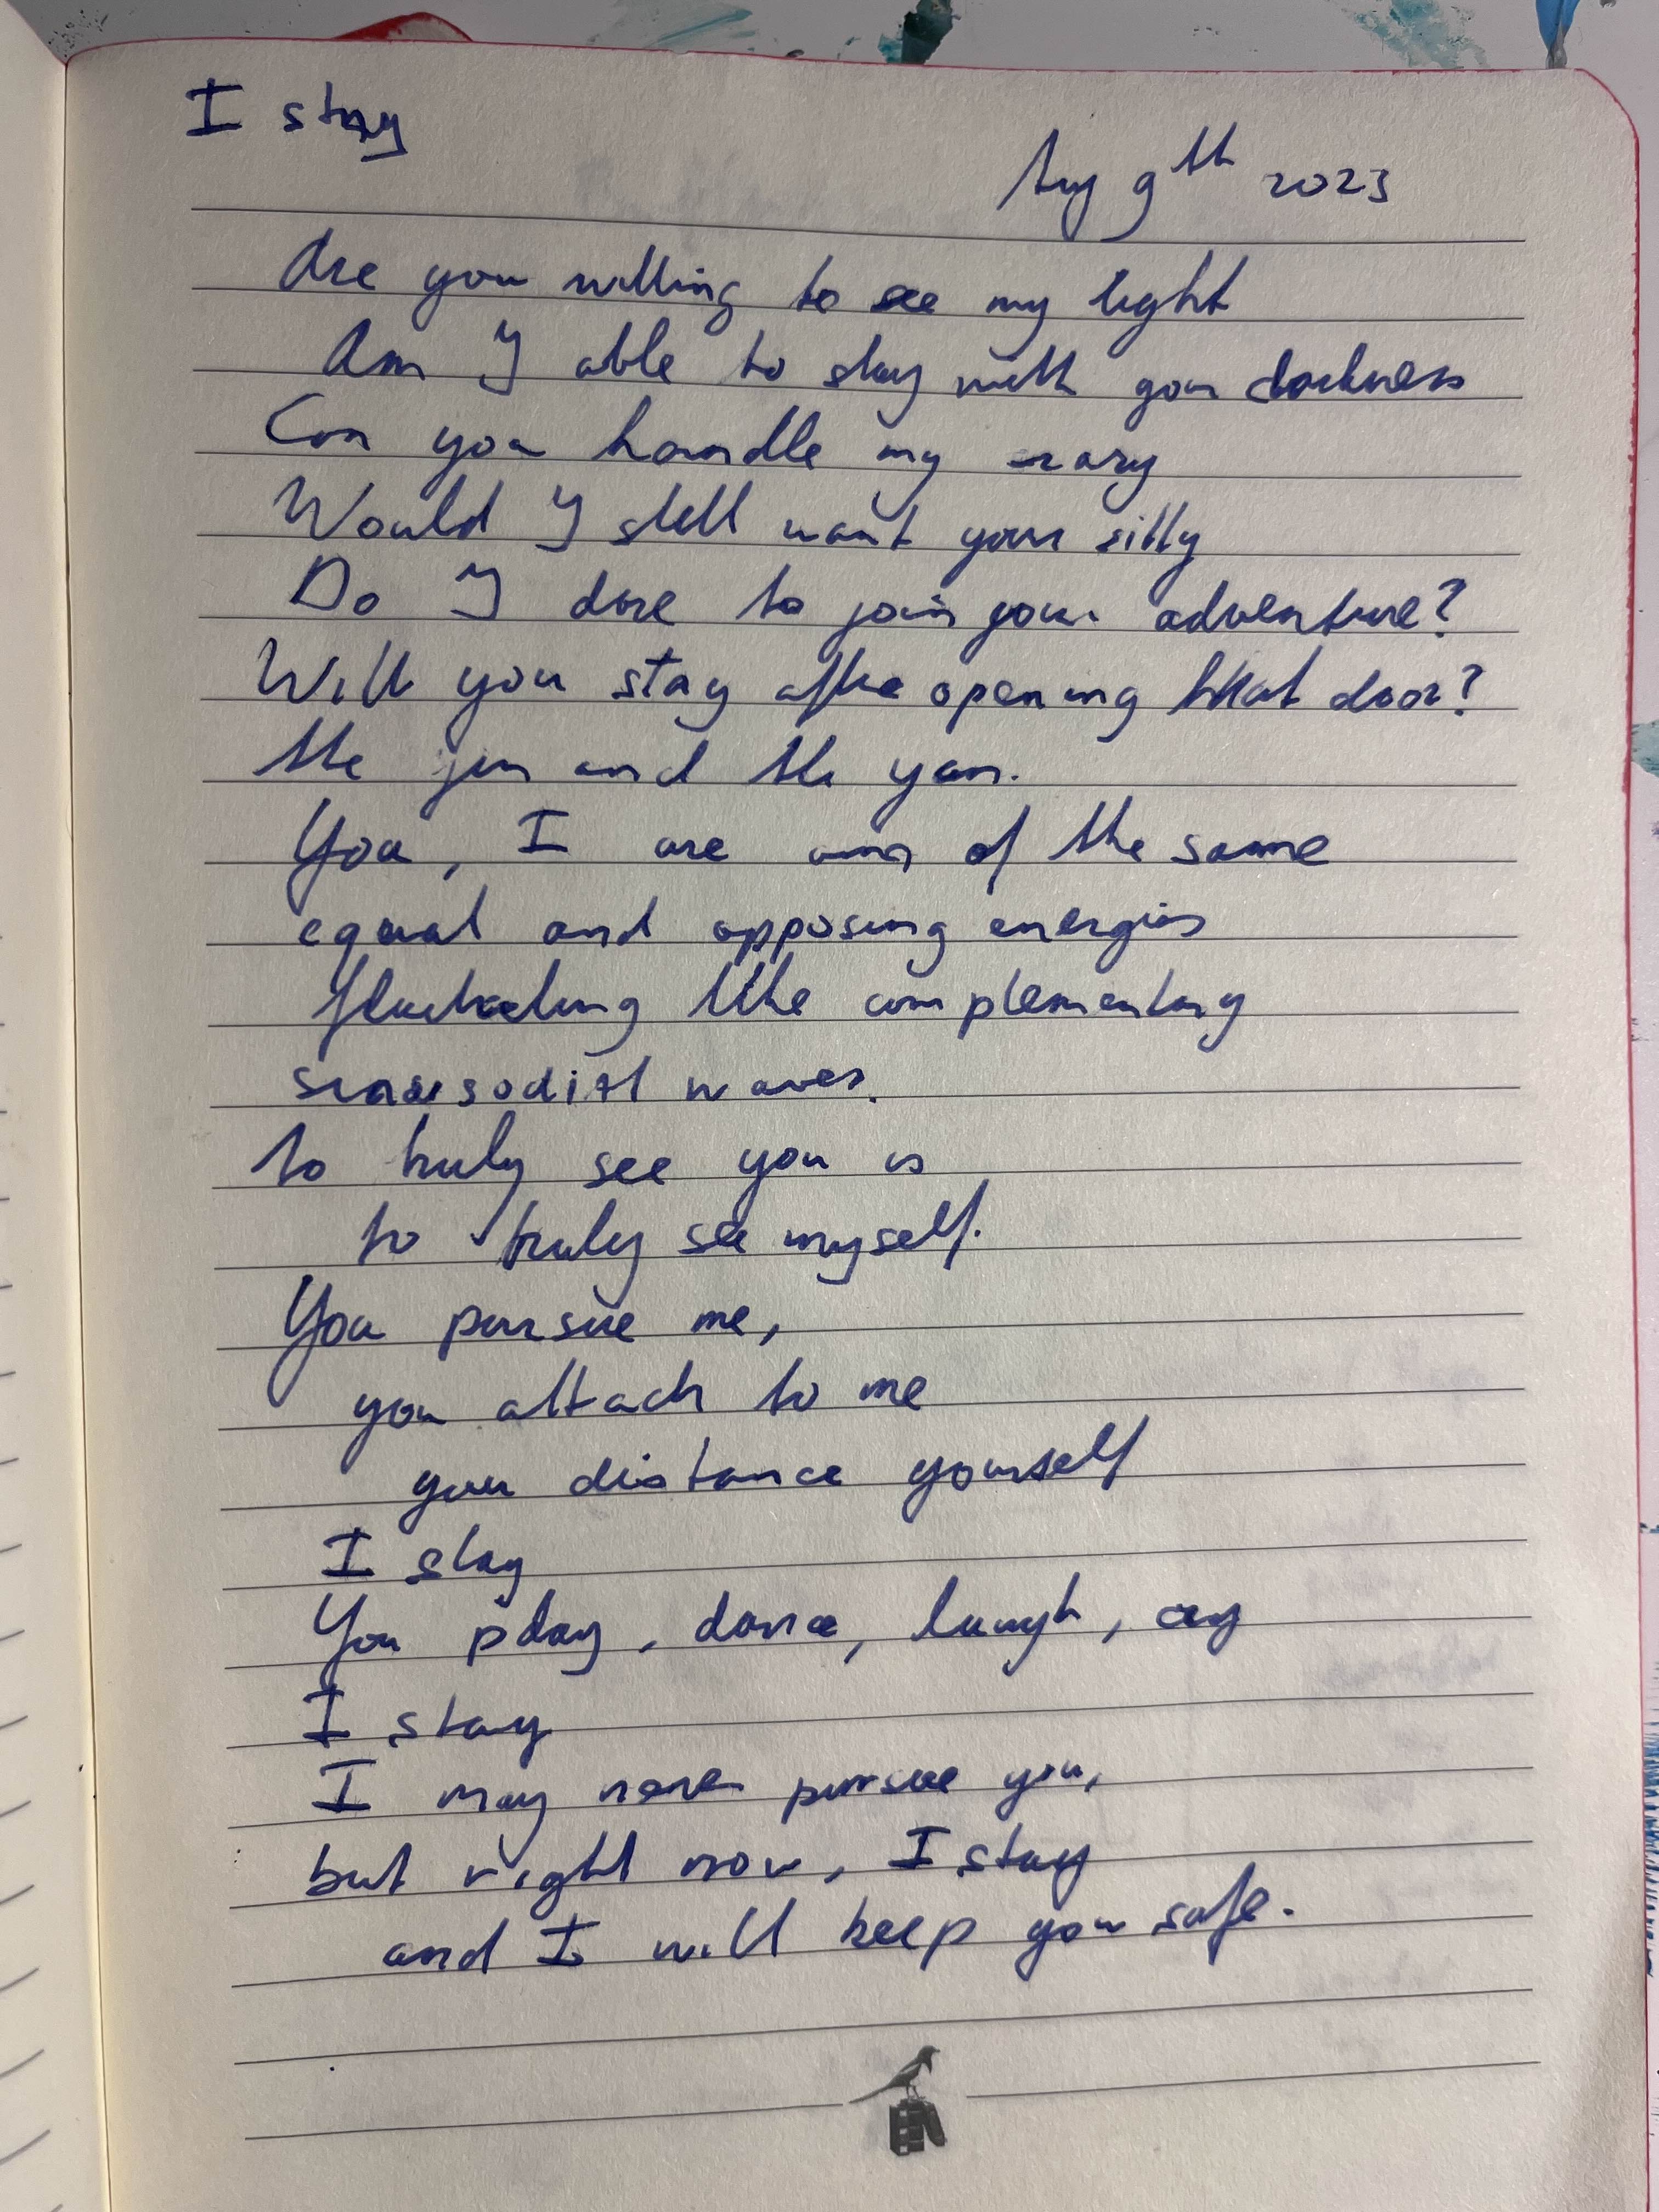 I stay
Aug 9th 2023
Are you willing to see my light
Am I able to stay with your darkness
Can you handle my crazy
Would I still want your silly
Do I dare to join your adventure?
Will you stay after opening that door?
the yin and the yan.
You, I are of the same
equal and opposing energies
fluctuating like complementary
sinusodial waves.
to truly see you is
to truly see myself.
You pursue me,
you attach to me
you distance yourself
I stay
You play, dance, laugh, cry
I stay
I may never pursue you,
but right now, I stay
and I will keep you safe.